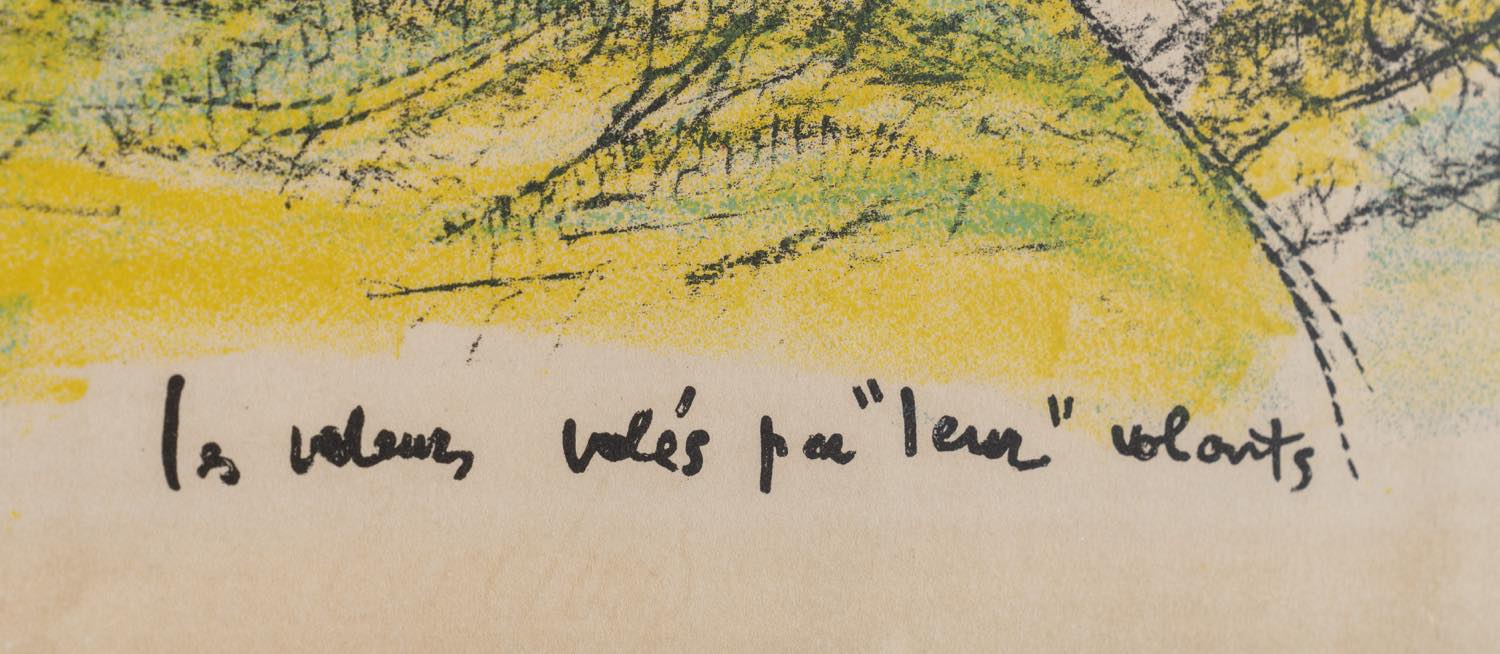 les voleurs volés par "leur" volants